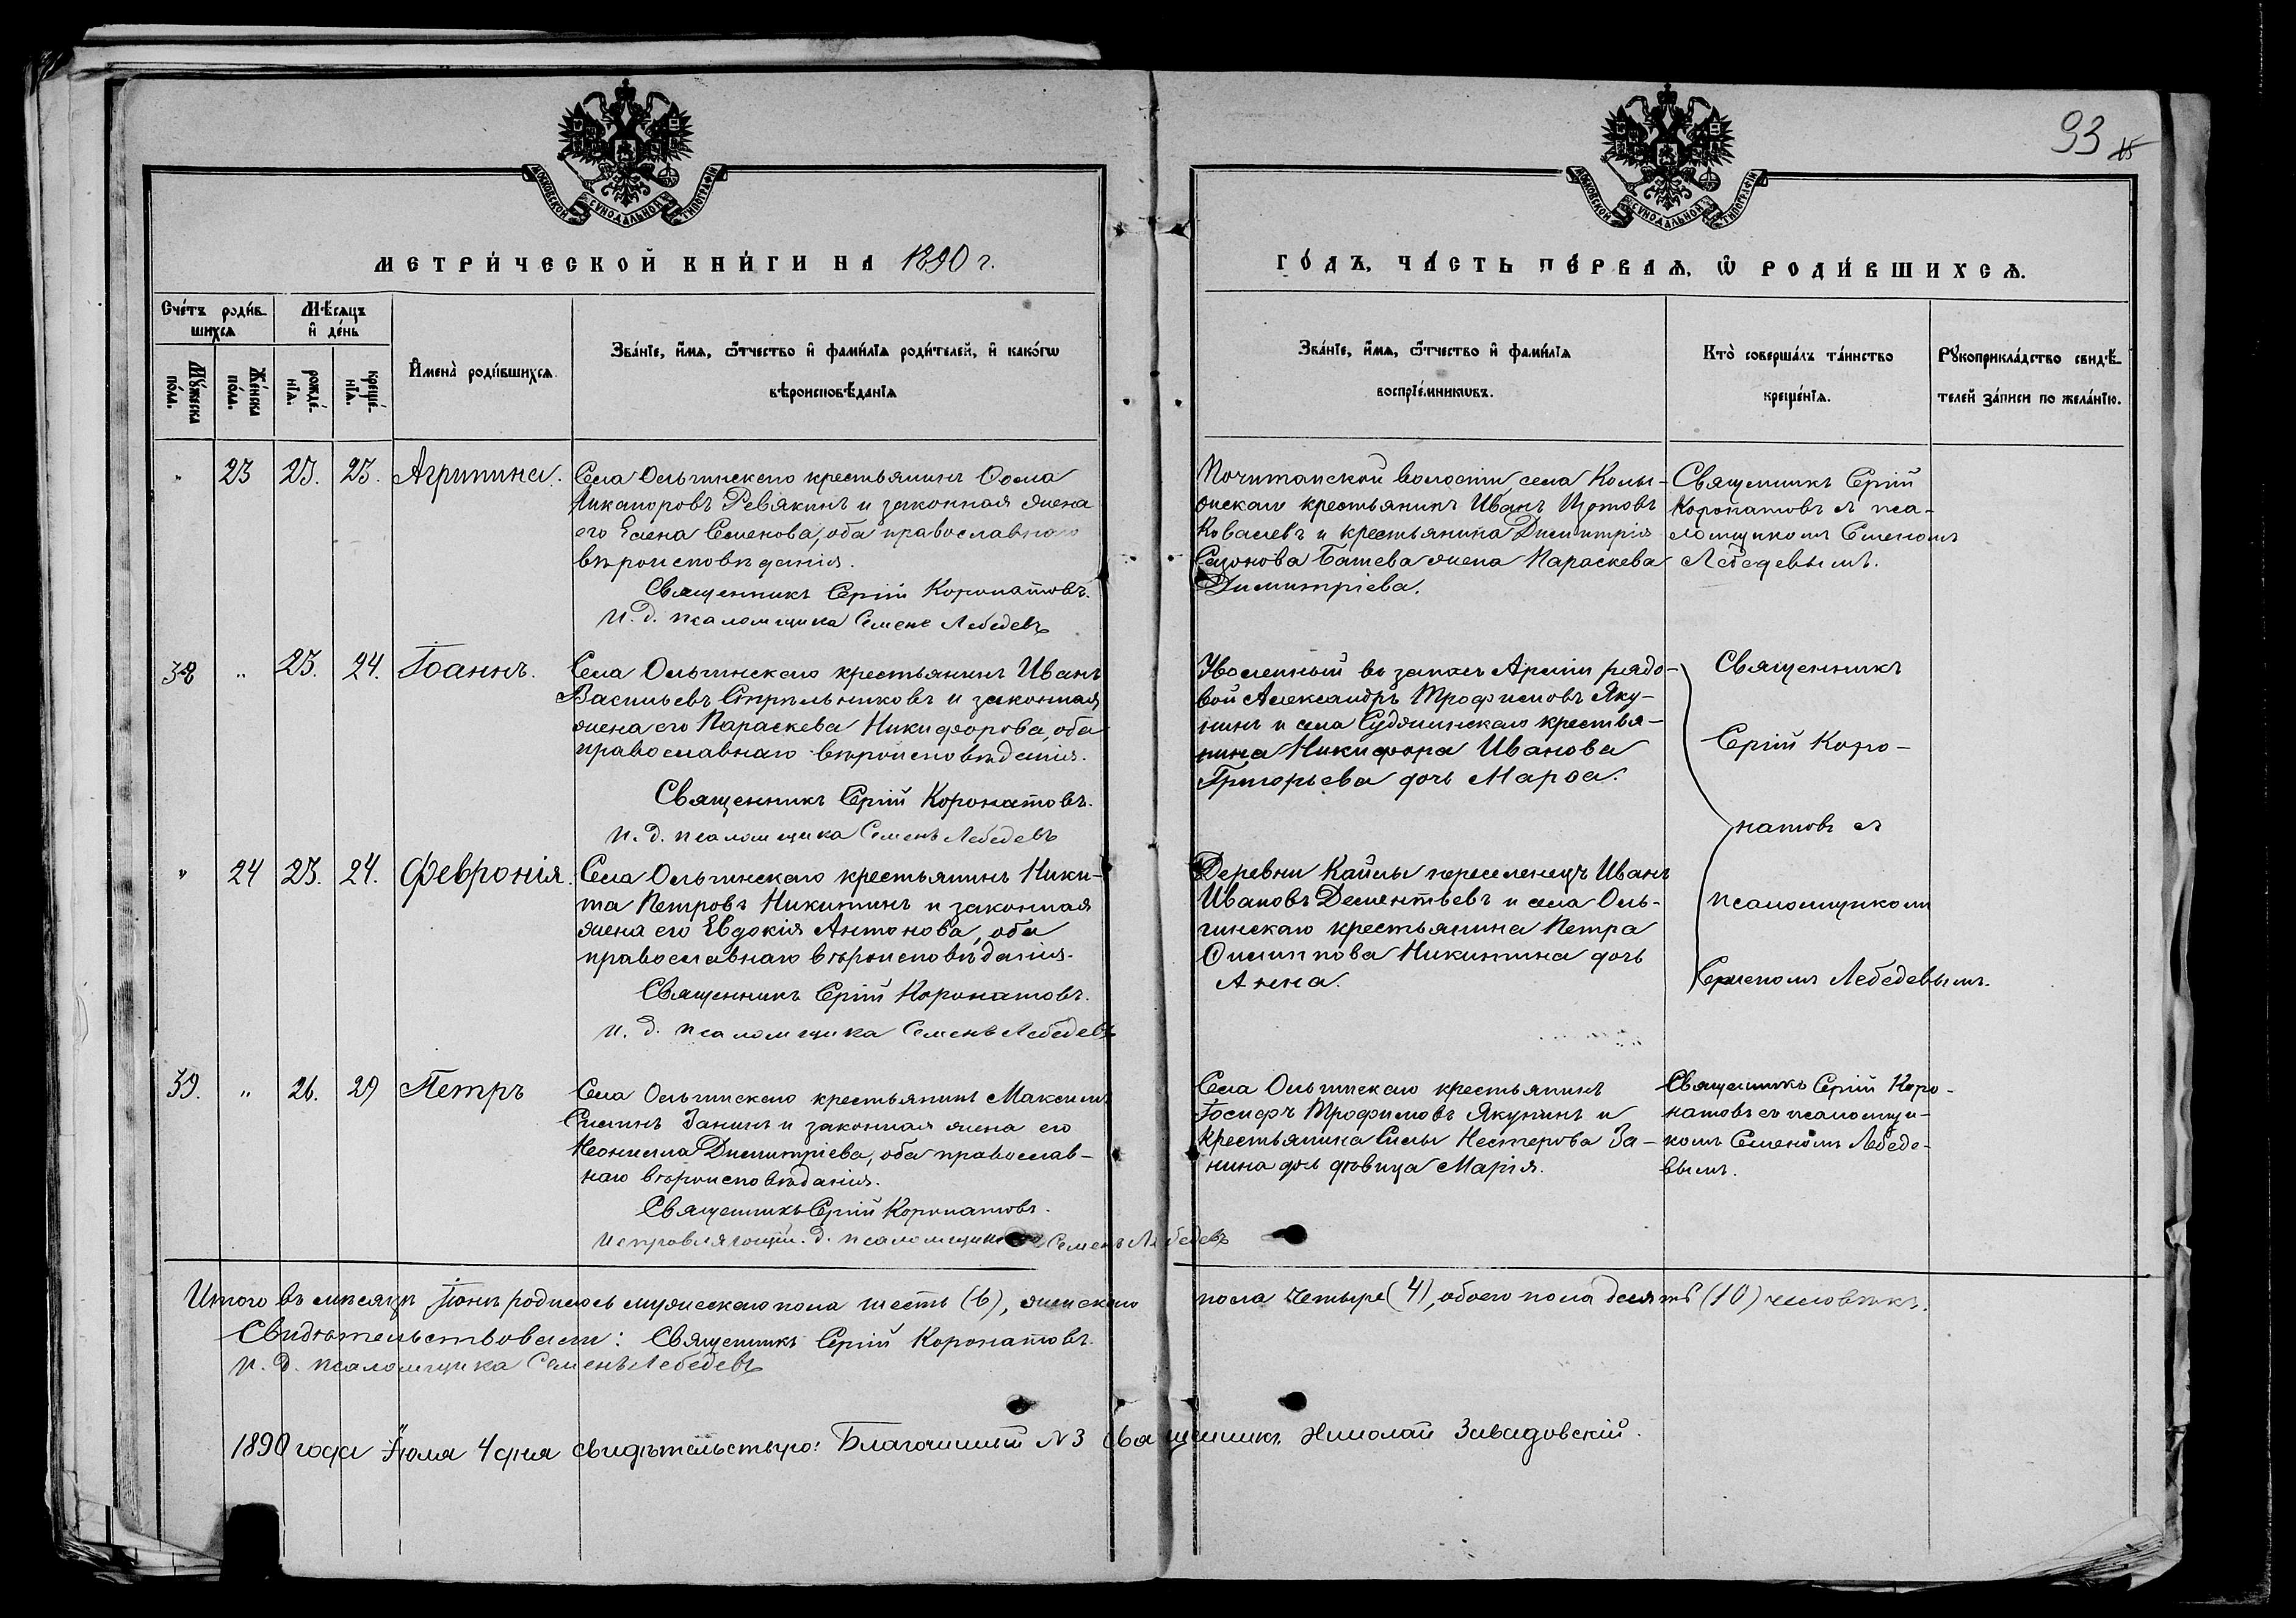 93
МОСКОВСКОЙ СѴНОДАЛЬНОЙ ТИПОГРАФІИ
МОСКОВСКОЙ СѴНОДАЛЬНОЙ ТИПОГРАФІИ
МЕТРИ́ЧЕСКОЙ КНИ́ГИ НА 1890 г.
ГО́ДЪ, ЧА́СТЬ ПЕ́РВАѦ, Ѡ РОДИ́ВШИХСѦ.
Сче́тъ роди́в-
шихсѧ
Мꙋ́жеска по́ла.
Же́нска по́ла.
Мѣ́сѧцъ
и҆ де́нь
рожде́-нїѧ.
креще́-нїѧ.
И҆мена̀ роди́вшихсѧ
Зва́нїе, и҆́мѧ, ѻ҆́тчество и҆ фами́лїѧ роди́телей, и҆ како́гѡ
вѣроисповѣ́данїѧ
Зва́нїе, и҆́мѧ, ѻ҆́тчество и҆ фами́лїѧ
воспрїе́мникѡвъ.
Кто̀ соверша́лъ та́инство
креще́нїѧ.
Рꙋкоприкла́дство свидѣ́-
телей за́писи по жела́нїю.
" 23 23. 23. Агрипина.
Села Ольгинскаго крестьянинъ
Никаноровъ Ревякинъ и законная жена
его Елена Семенова, оба православнаго
вѣроисповѣданія.
Священникъ Сергій Коронатовъ.
И. д. псаломщика Семенъ Лебедевъ
Почитанской волости села Колы-
онскаго крестьянинъ Иванъ Изотовъ
Ковалевъ и крестьянина Димитрія
Сазонова Батева жена Параскева
Димитріева.
Священникъ Сергій
Коронатовъ съ пса-
ломщикомъ Семеномъ
Лебедевымъ.
38 " 23. 24. Іоаннъ.
Села Ольгинскаго крестьянинъ Иванъ
Васильевъ Стрѣльниковъ и законная
жена его Параскева Никифорова, оба
православнаго вѣроисповѣданія.
Священникъ Сергій Коронатовъ.
И. д. псаломщика Семенъ Лебедевъ
Уволенный въ запасъ Арміи рядо-
вой Александръ Трофимовъ Яку-
нинъ и села Судженскаго крестья-
нина Никифора Иванова
Григорьева дочь Марѳа.
Священникъ
Сергій Коро-
натовъ съ
псаломщикомъ
Семеномъ Лебедевымъ.
" 24 23. 24. Февронія.
Села Ольгинскаго крестьянинъ Ники-
та Петровъ Никитинъ и законная
жена его Евдокія Антонова, оба
православнаго вѣроисповѣданія.
Священникъ Сергій Коронатовъ.
И. д. псаломщика Семенъ Лебедевъ
Деревни Кайлы переселенецъ Иванъ
Ивановъ Дементьевъ и села Оль-
гинскаго крестьянина Петра
Никитина дочь
Анна.
39. " 26. 29 Петръ
Села Ольгинскаго крестьянинъ Максимъ
Силинъ Занинъ и законная жена его
Неонилла Димитріева, оба православ-
наго вѣроисповѣданія.
Священникъ Сергій Коронатовъ.
Исправляющій. д. псаломщика Семенъ Лебедевъ
Села Ольгинскаго крестьянинъ
Іосифъ Трофимовъ Якунинъ и
крестьянина Силы Нестерова За-
нина дочь дѣвица Марія.
Священникъ Сергій Коро-
натовъ съ псаломщи-
комъ Семеномъ Лебеде-
вымъ.
Итого въ мѣсяцѣ Іюнѣ родилось мужескаго пола шесть (6), женскаго пола четыре (4), обоего пола десять (10) человѣкъ.
Свидѣтельствовали: Священникъ Сергій Коронатовъ.
И. д. псаломщика Семенъ Лебедевъ
1890 года Іюля 4 дня свидѣтельствую: Благочинный N 3 священникъ Николай Завадовскій.